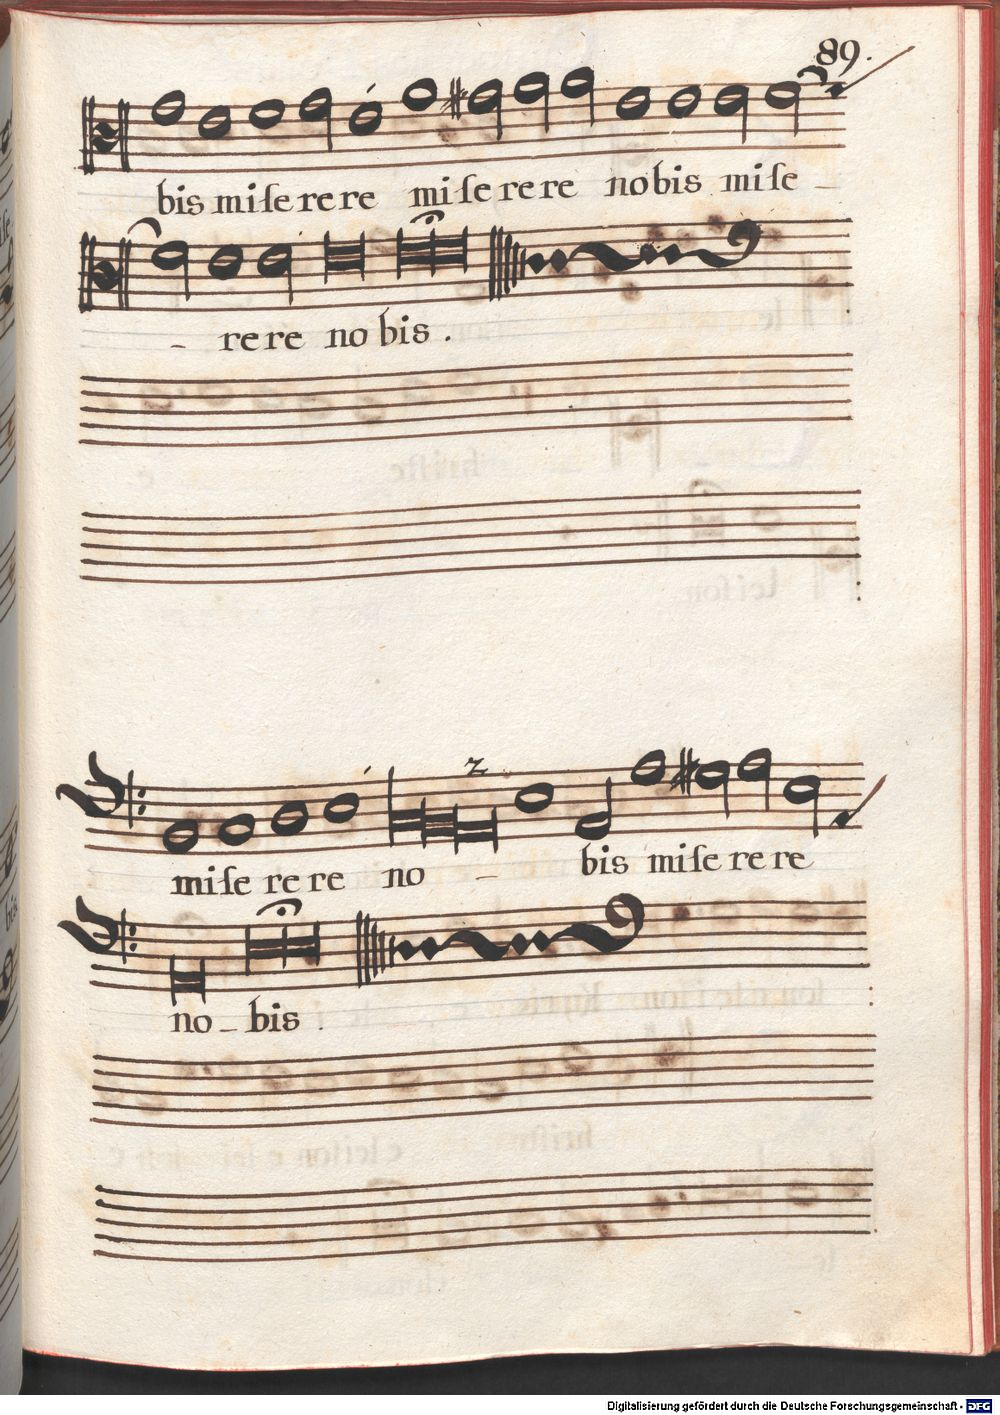 89.
bis miſerere miſerere nobis miſe -
- rere nobis.
z
miſe rere no - bis miſe rere
no - bis.
Digitalisierung gefördert durch die Deutsche Forschungsgemeinschaft - DFG